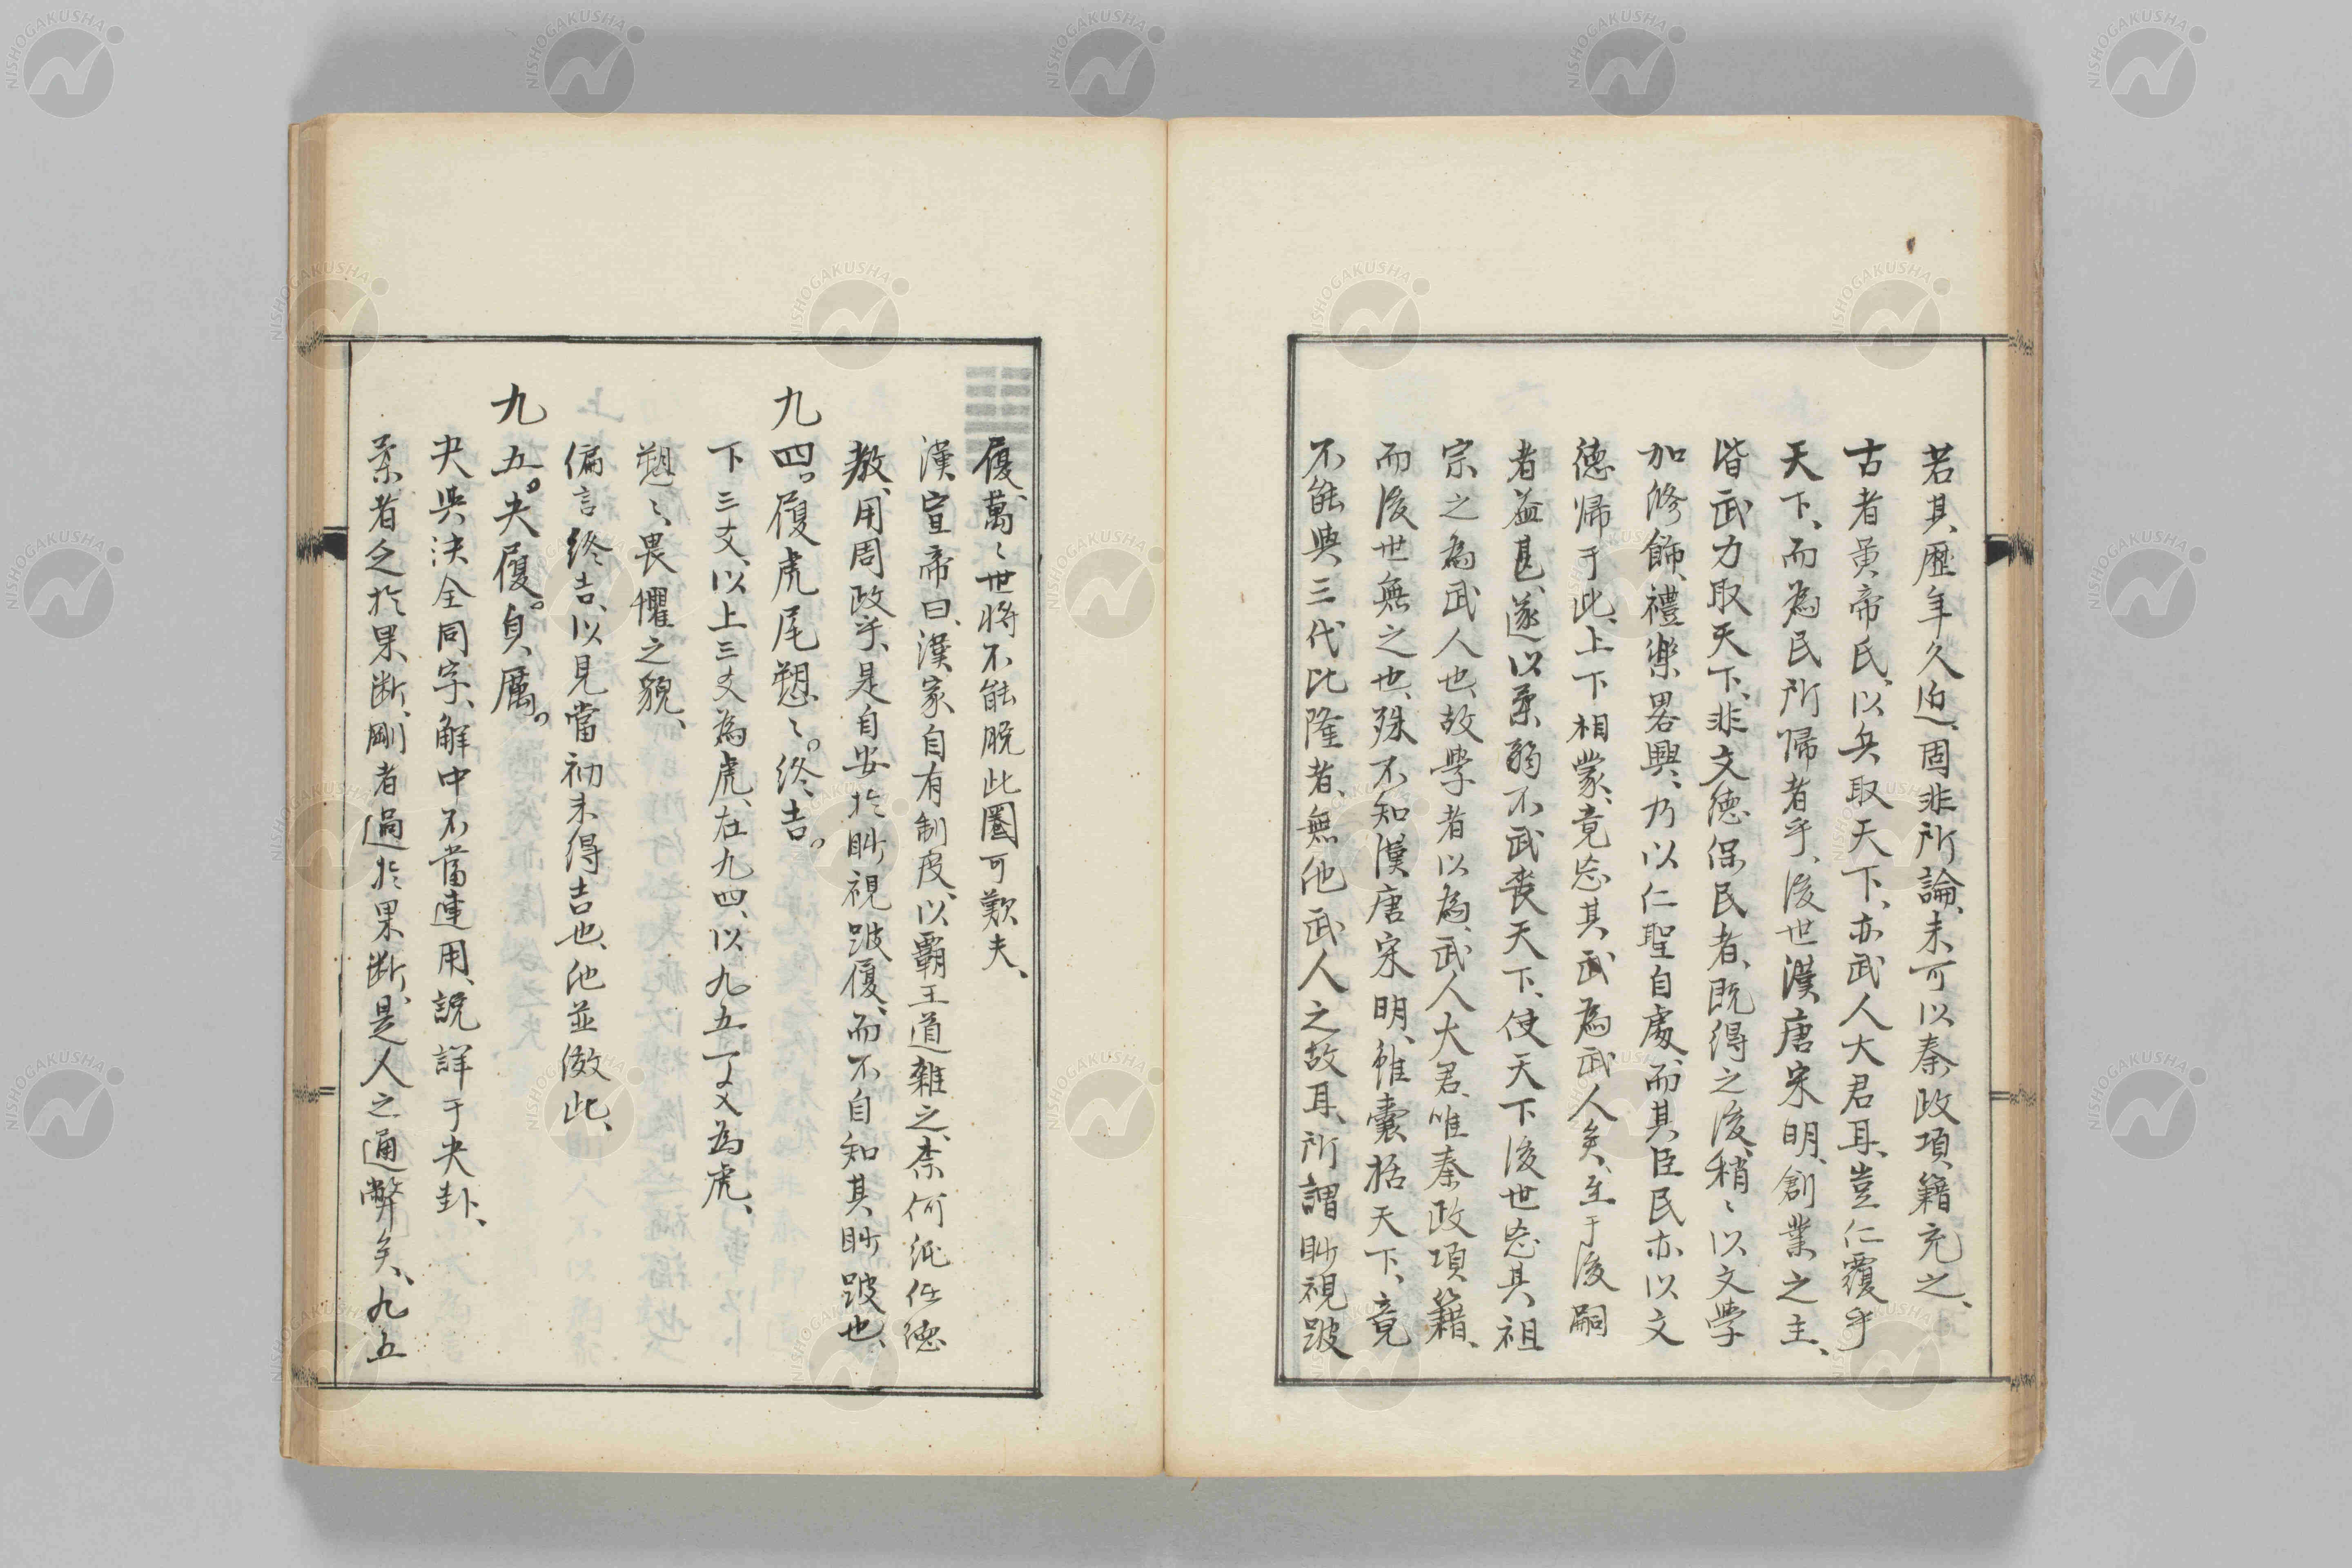 若其歷年久迫、固非所論、未可以秦政項籍充之、
古者黃帝氏、以兵取天下、亦武人大君耳、豈仁覆乎
天下、而為民所帰者乎、後世漢唐宋明、創業之主、
皆武力取天下、非文德保民者、既得之後、稍〻以文學
加修飾、禮樂畧興、乃以仁聖自處、而其臣民亦以文
德帰于此、上下相蒙、竟忘其武為武人矣、至于後嗣
者益甚、遂以柔弱不武喪天下、使天下後世忘其祖
宗之為武人也、故學者以為、武人大君、唯秦政項籍、
而後世無之也、殊不知漢唐宋明、雖囊括天下、竟
不能與三代比隆者、無他武人之故耳、所謂眇視跛
履、萬〻世將不能脫此圈可歎夫、
漢宣帝曰、漢家自有制度、以霸王道雜之、柰何純任德
教、用周政乎、是自安於眇視跛履、而不自知其眇跛也、
九四。履虎尾愬〻。終吉。
下三爻、以上三爻為虎、在九四、以九五一爻為虎、
愬〻、畏懼之貌、
偏言終吉、以見當初未得吉也、他並倣此、
九五。夬履。貞厲。
夬與決全同字、解中不當連用、說詳于夬卦、
柔者乏於果断、剛者過於果断、是人之通弊矣、九五
NISHOGAKUSHA